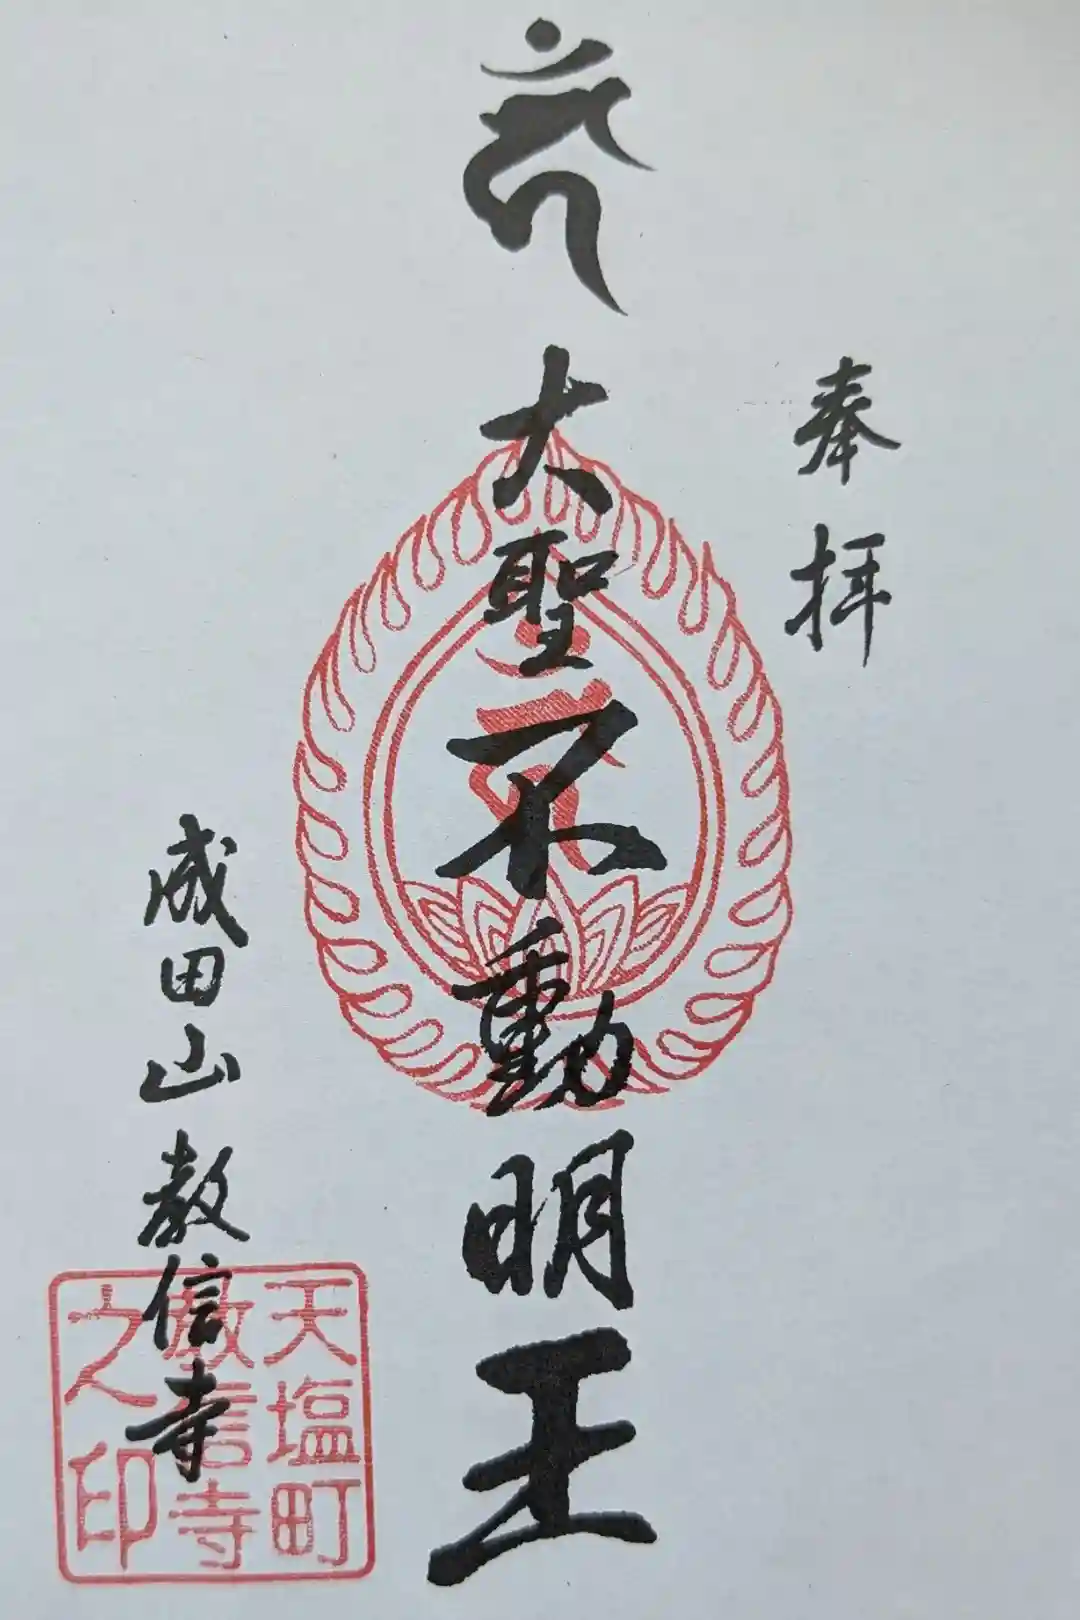 奉拝
𑖮𑖯𑖽
大聖不動明王
成田山教信寺
天塩町
教信寺
之印